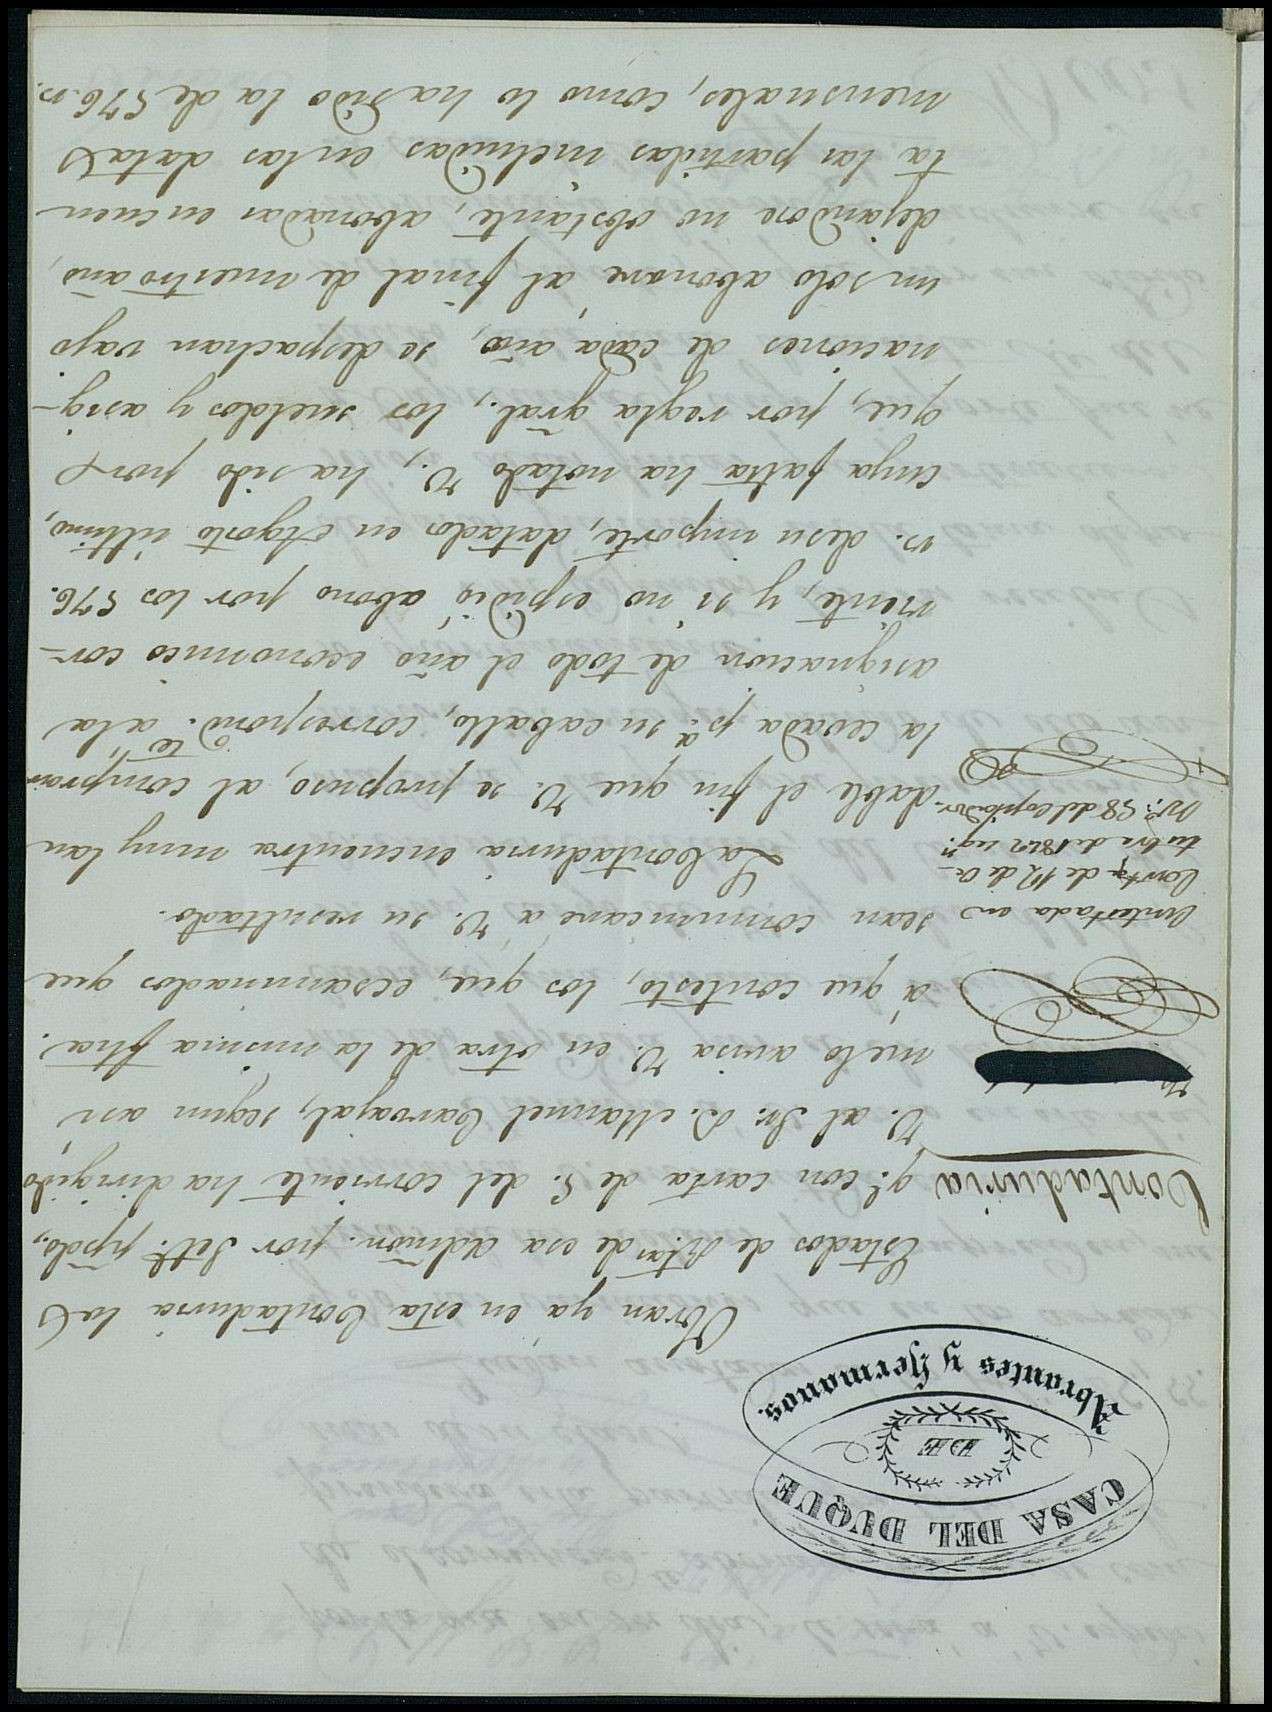 CASA DEL DUQUE
DE
Abrantes y Hermanos.
Obran ya en esta Contaduria los
Estados de Ctas. de esa admón. por Setbe. ppdo.,
Contaduria
qe. con carta de 5. del corriente ha dirigido
V. al Sr. D. Manuel Carvajal, segun an
melo avisa V. en otra de la misma fha.
á que contesto, los que, ecsaminados que
sean comunicaré á V. su resultado.
Contestada en
Carta de 12 de Oc-
tubre de 1842 seg.n
nº. 58 del copiador.
La Contaduria encuentra muy lau
dable el fin que V. se propuso, al comprar
la cevada pa. su caballo, correspondte. a la
asignacion de todo el año economico cor-
riente, y si no espidió abono por los 576.
rs. de su importe, datados en Agosto ultimo,
cuya falta ha notado V., ha sido por
que, por regla gral., los sueldos y asig-
naciones de cada año, se despachan vajo
un solo abonaré al final de nuestro año,
dejandose no obstante, abonadas en cuen
ta las partidas incluidas en las datas
mensuales, como lo ha sido la de 576. rs.